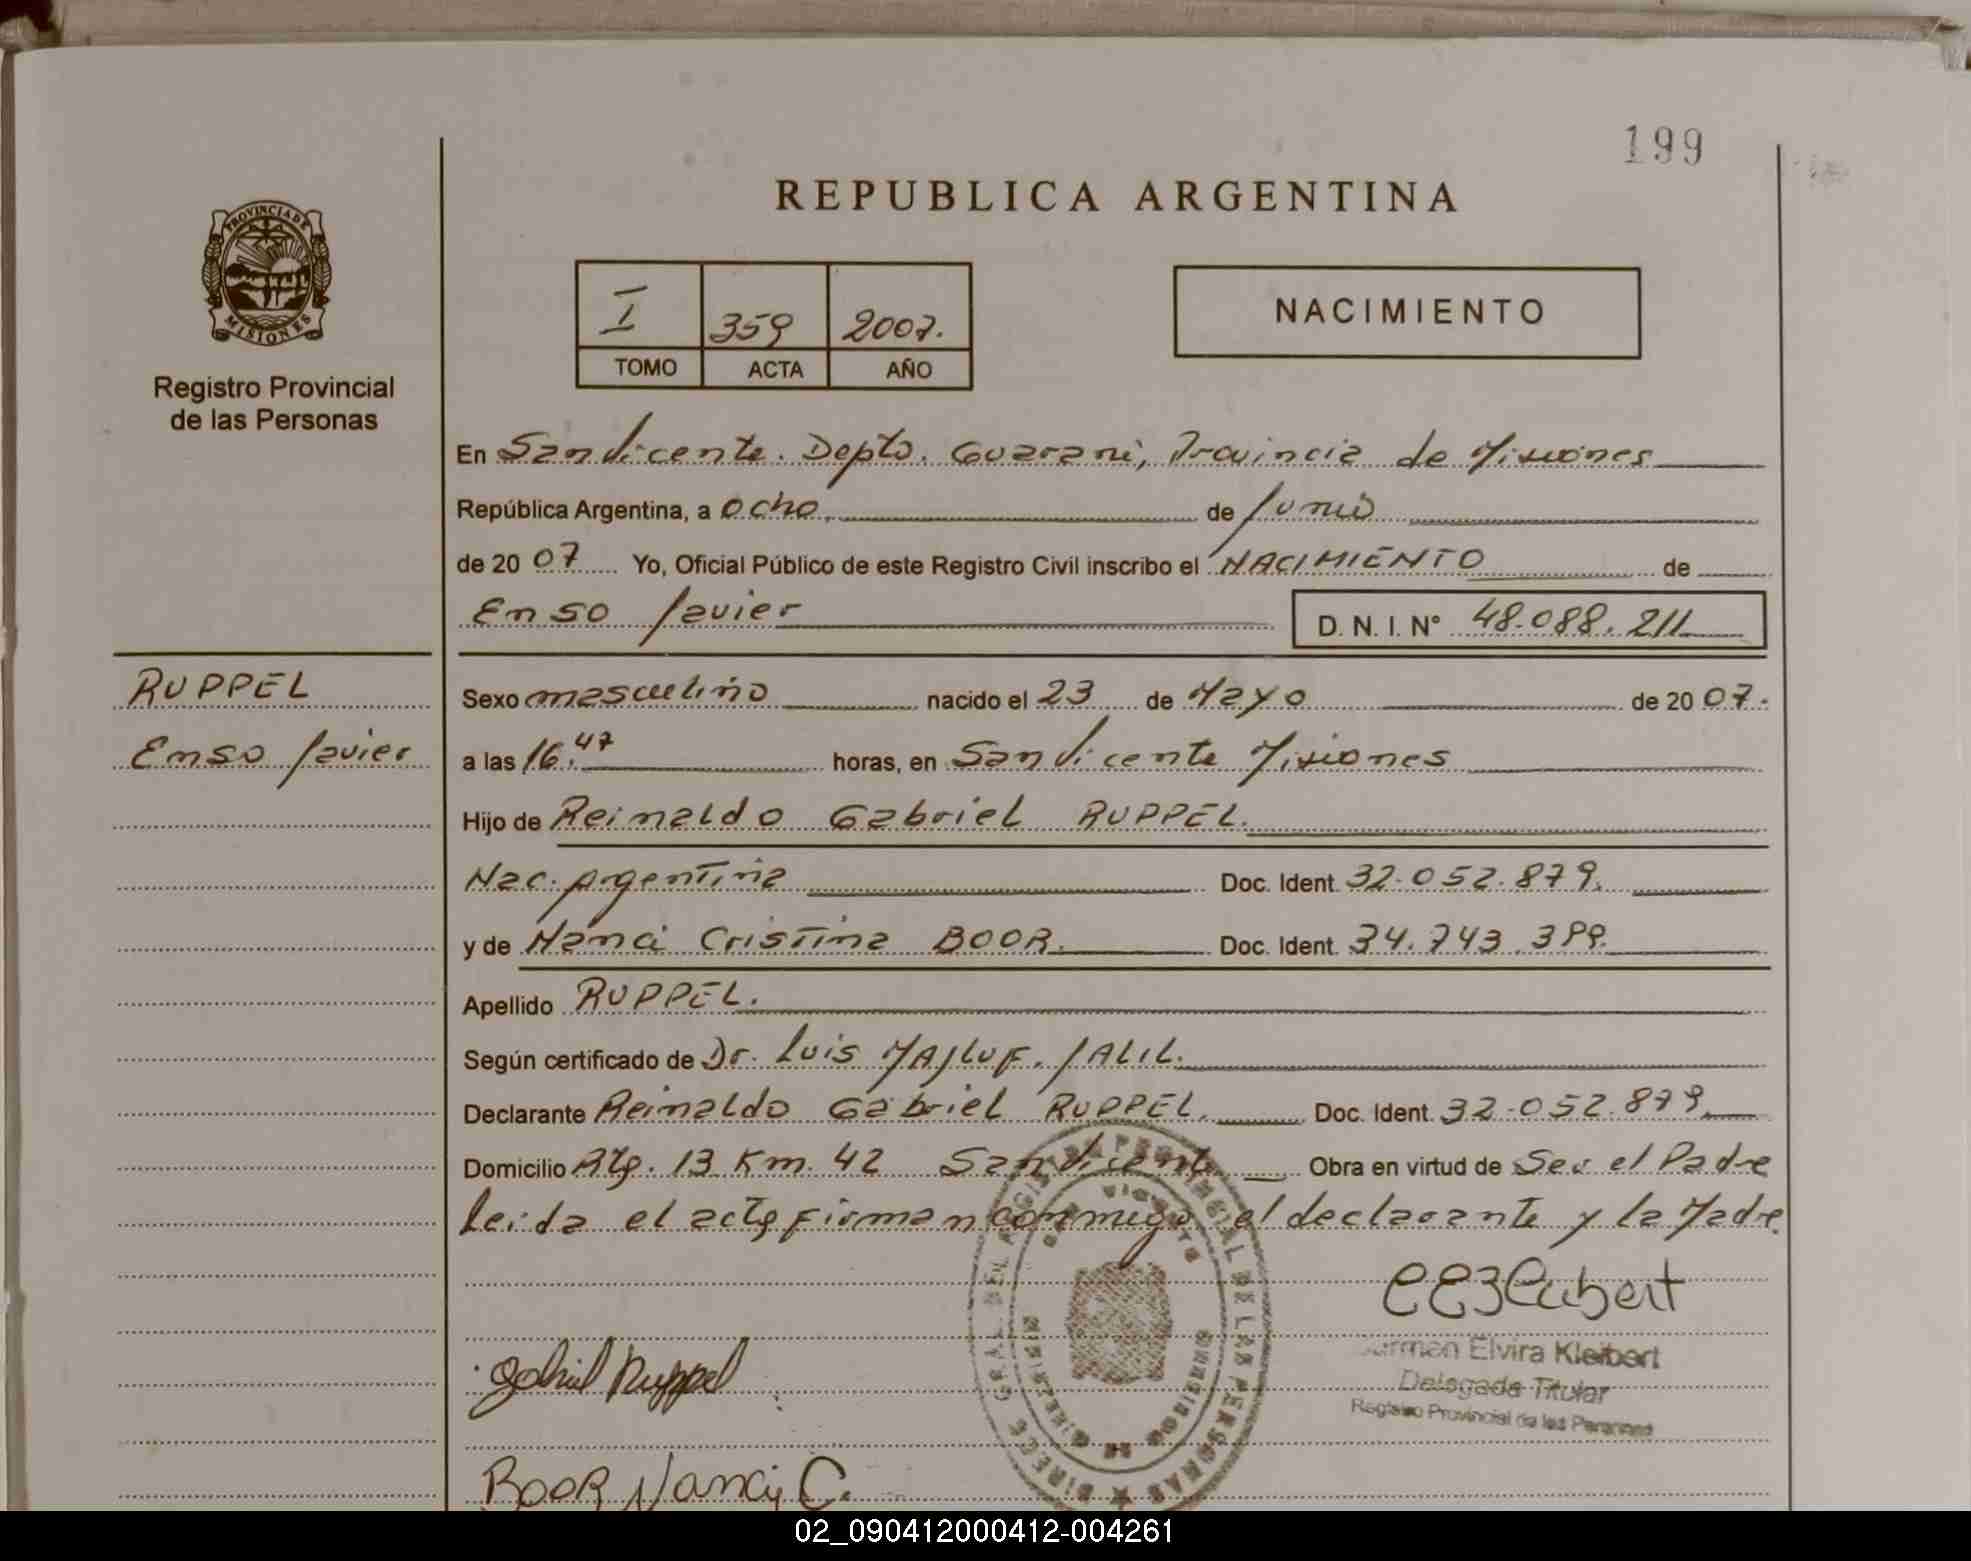 199
REPUBLICA ARGENTINA
PROVINCIA DE
MISIONES
Registro Provincial
de las Personas
I 359 2007.
TOMO ACTA AÑO
NACIMIENTO
En San Vicente. Depto. Guarani, Provincia de Misiones
República Argentina, a ocho, de Junio
de 20 07 Yo, Oficial Público de este Registro Civil inscribo el NACIMIENTO de
Enso Javier D. N. I. N° 48.088.211
RUPPEL
Enso Javier
Sexo masculino nacido el 23 de Mayo de 20 07.
a las 16:47 horas, en San Vicente Misiones
Hijo de Reinaldo Gabriel RUPPEL.
Nac. Argentina Doc. Ident. 32.052.879.
y de Nanci Cristina BOOR. Doc. Ident. 34.743.399.
Apellido RUPPEL.
Según certificado de Dr. Luis MAJLUF. JALIL.
Declarante Reinaldo Gabriel RUPPEL. Doc. Ident. 32.052.879.
Domicilio Rta. 13 Km. 42 San Vicente Obra en virtud de Ser el Padre
Leida el acta firman conmigo el declarante y la Madre.
Gabriel Ruppel
BOOR Nanci C.
Elvira Kleibert
Delegada Titular
Registro Provincial de las Personas
02_090412000412-004261